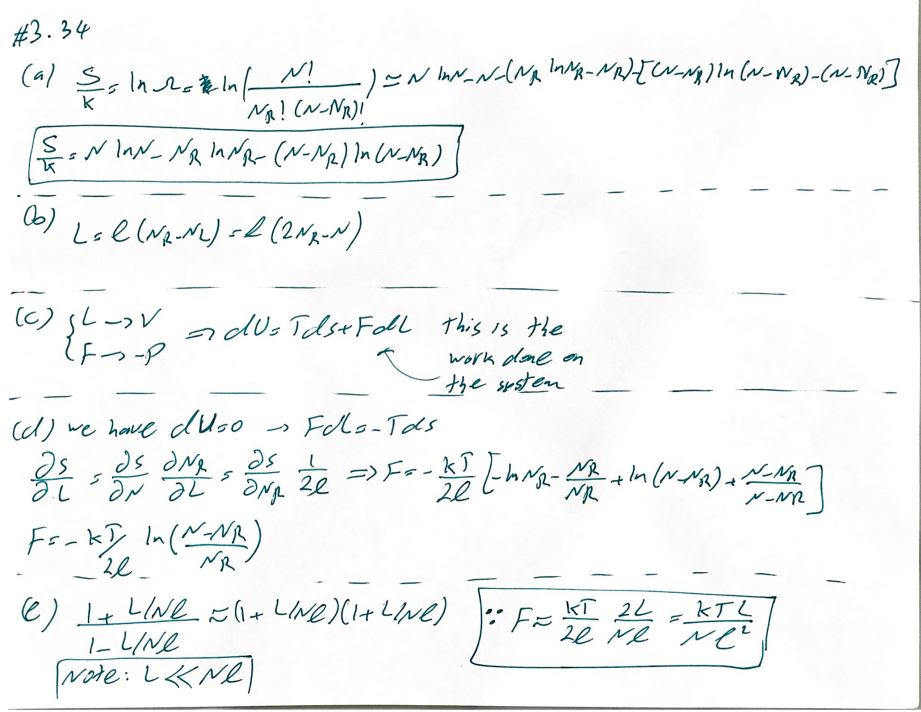 #3.34
(a) S/k = ln Ω = ln(N!/(N_R! (N-N_R)!)) ≃ N lnN - N - (N_R lnN_R - N_R) - [(N-N_R) ln(N-N_R) - (N-N_R)]
S/k = N lnN - N_R lnN_R - (N-N_R) ln(N-N_R)
(b) L = ℓ(N_R-N_L) = ℓ(2N_R-N)
(c) { L → V
F → -P ⇒ dU = TdS + FdL This is the
work done on
the system
(d) we have dU=0 → FdL = -TdS
∂S/∂L = ∂S/∂N ∂N_R/∂L = ∂S/∂N_R 1/2ℓ ⇒ F = -kT/2ℓ [-lnN_R - N_R/N_R + ln(N-N_R) + (N-N_R)/(N-N_R)]
F = -kT/2ℓ ln((N-N_R)/N_R)
(e) (1 + L/Nℓ)/(1 - L/Nℓ) ≈ (1 + L/Nℓ)(1 + L/Nℓ) ∵ F ≈ kT/2ℓ 2L/Nℓ = kTL/Nℓ²
Note: L ≪ Nℓ